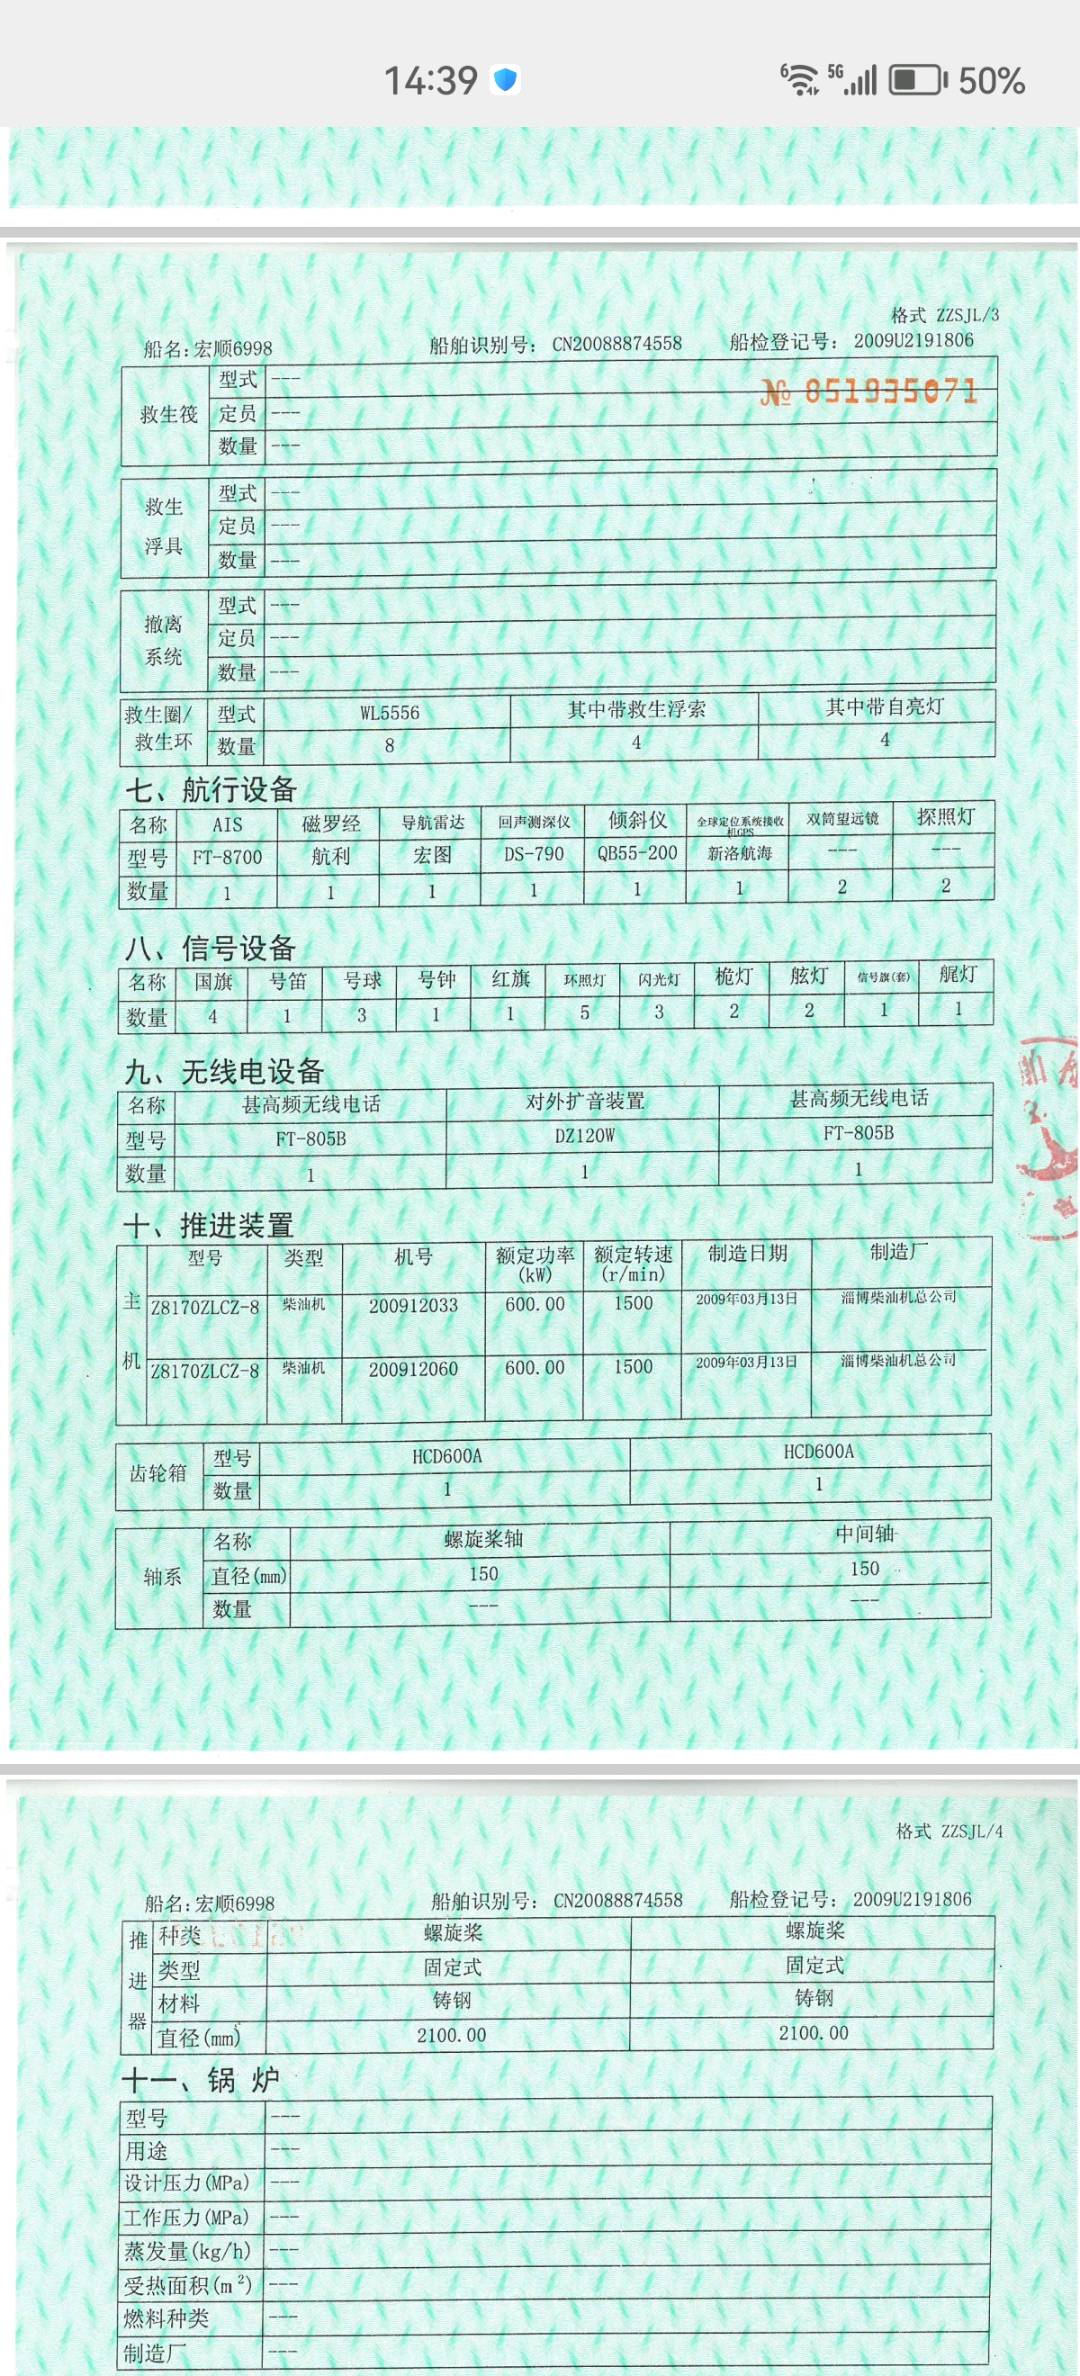 14:39 6 5G 50%
格式 ZZSJL/3
船名:宏顺6998 船舶识别号: CN20088874558 船检登记号: 2009U2191806
№ 851935071
救生筏 型式 ---
定员 ---
数量 ---
救生浮具 型式 ---
定员 ---
数量 ---
撤离系统 型式 ---
定员 ---
数量 ---
救生圈/救生环 型式 WL5556 其中带救生浮索 其中带自亮灯
数量 8 4 4
七、航行设备
名称 AIS 磁罗经 导航雷达 回声测深仪 倾斜仪 全球定位系统接收机GPS 双筒望远镜 探照灯
型号 FT-8700 航利 宏图 DS-790 QB55-200 新洛航海 --- ---
数量 1 1 1 1 1 1 2 2
八、信号设备
名称 国旗 号笛 号球 号钟 红旗 环照灯 闪光灯 桅灯 舷灯 信号旗(套) 艉灯
数量 4 1 3 1 1 5 3 2 2 1 1
九、无线电设备
名称 甚高频无线电话 对外扩音装置 甚高频无线电话
型号 FT-805B DZ120W FT-805B
数量 1 1 1
十、推进装置
主机 型号 类型 机号 额定功率(kW) 额定转速(r/min) 制造日期 制造厂
Z8170ZLCZ-8 柴油机 200912033 600.00 1500 2009年03月13日 淄博柴油机总公司
Z8170ZLCZ-8 柴油机 200912060 600.00 1500 2009年03月13日 淄博柴油机总公司
齿轮箱 型号 HCD600A HCD600A
数量 1 1
轴系 名称 螺旋桨轴 中间轴
直径(mm) 150 150
数量 --- ---
格式 ZZSJL/4
船名:宏顺6998 船舶识别号: CN20088874558 船检登记号: 2009U2191806
推进器 种类 螺旋桨 螺旋桨
类型 固定式 固定式
材料 铸钢 铸钢
直径(mm) 2100.00 2100.00
十一、锅 炉
型号 ---
用途 ---
设计压力(MPa) ---
工作压力(MPa) ---
蒸发量(kg/h) ---
受热面积(m²) ---
燃料种类 ---
制造厂 ---